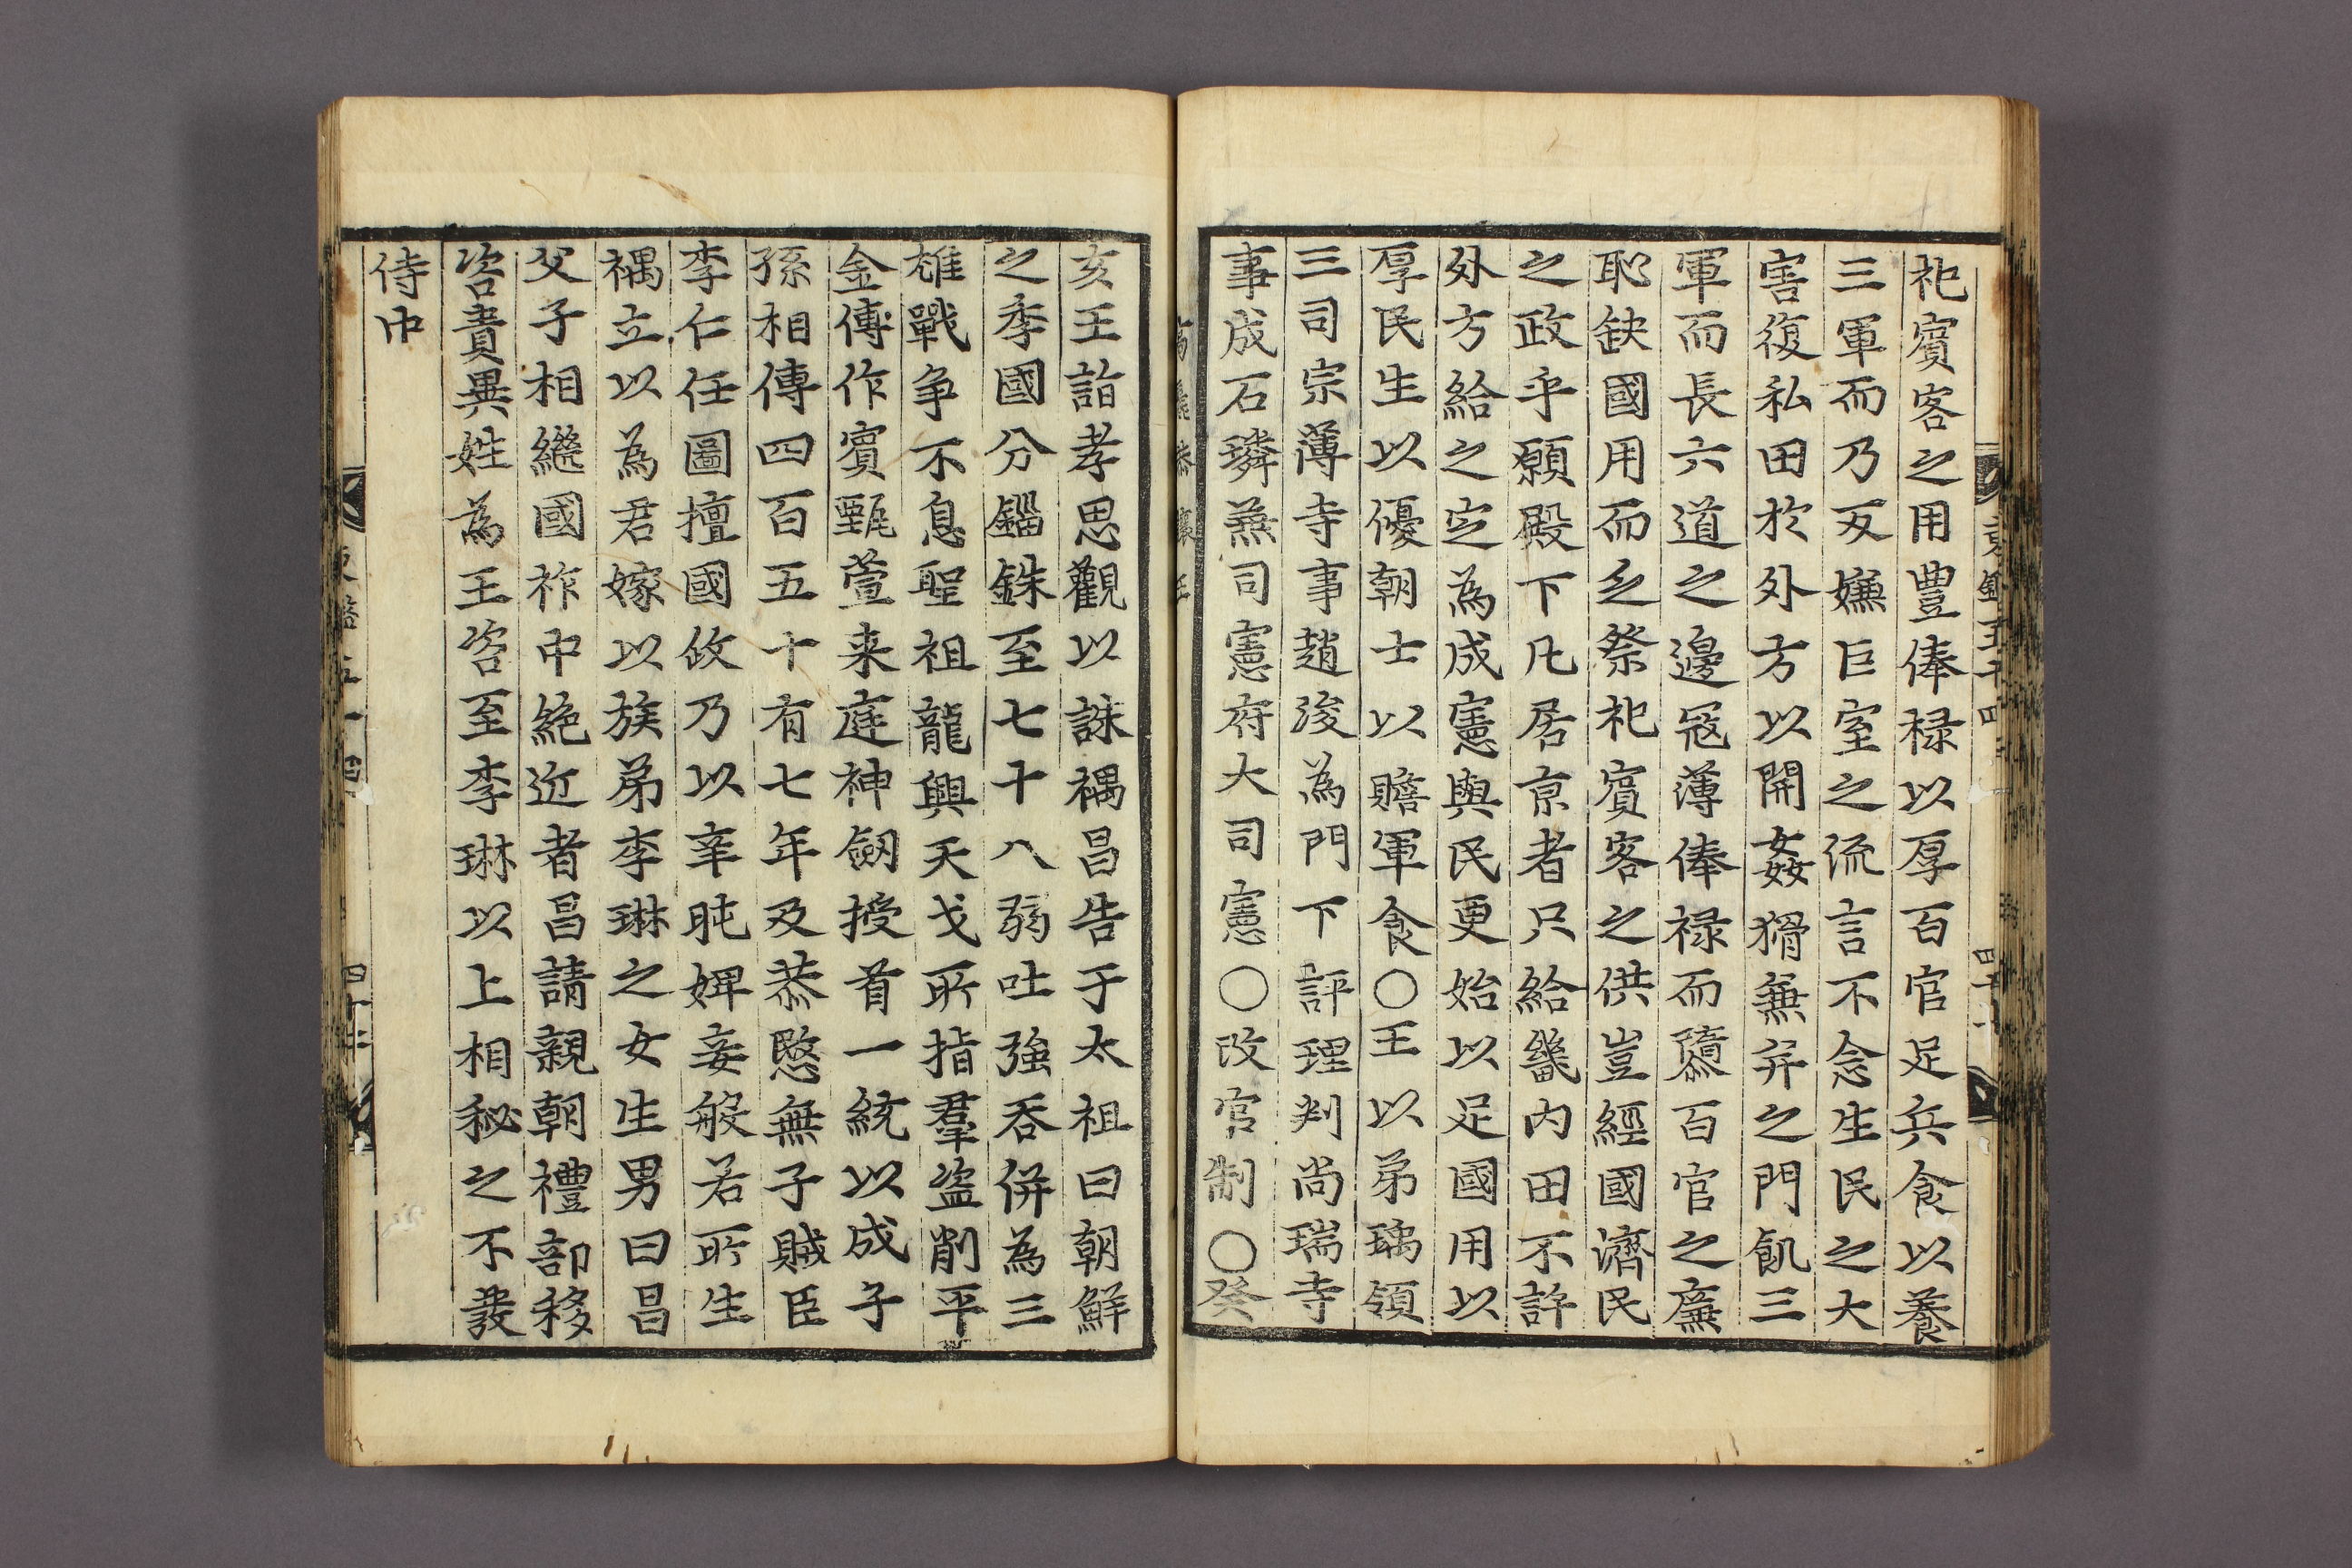 祀賓客之用豊俸禄以厚百官足兵食以養
三軍而乃反嫌巨室之流言不念生民之大
害復私田於外方以開姦猾兼并之門飢三
軍而長六道之邊冦薄俸禄而隳百官之廉
恥缺國用而乏祭祀賓客之供豈經國濟民
之政乎願殿下凡居京者只給畿内田不許
外方給之定為成憲與民更始以足國用以
厚民生以優朝士以贍軍食○王以弟瑀領
三司宗薄寺事趙浚為門下評理判尚瑞寺
事成石璘兼司憲府大司憲○改官制○癸
亥王詣孝思觀以誅禑昌告于太祖曰朝鮮
之季國分錙銖至七十八弱吐強吞併為三
雄戰争不息聖祖龍興天戈所指羣盗削平
金傅作賓甄萱来庭神劔授首一統以成子
孫相傳四百五十有七年及恭愍無子賊臣
李仁任圖擅國政乃以辛旽婢妾般若所生
禑立以為君嫁以族弟李琳之女生男曰昌
父子相繼國祚中絶近者昌請親朝禮部移
咨責異姓為王咨至李琳以上相秘之不發
侍中